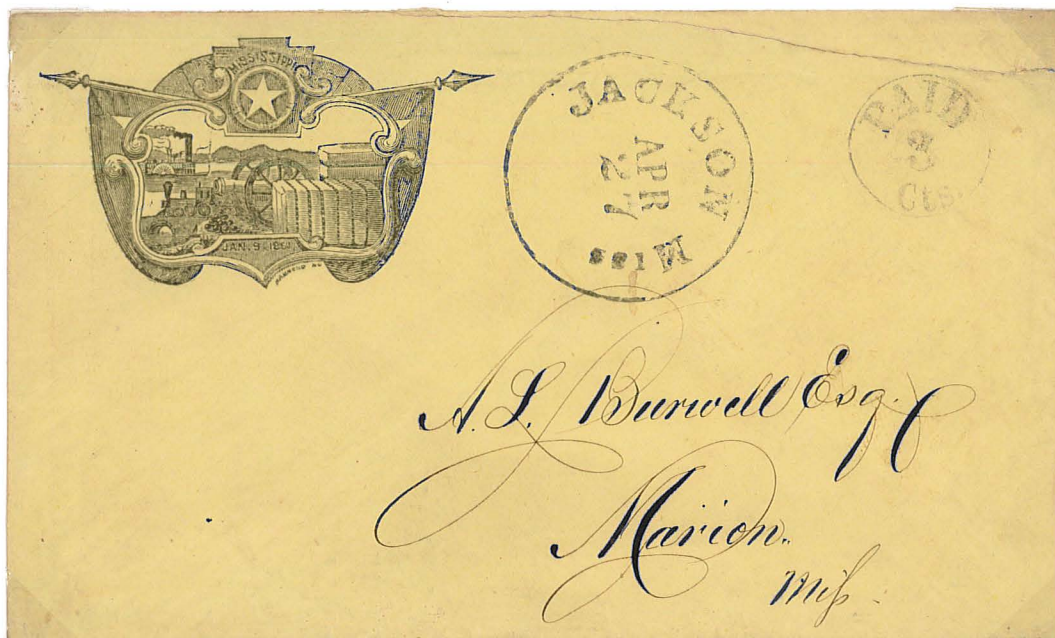 MISSISSIPPI
JAN. 9, 1861
JACKSON
APR
27
Miss
PAID
3
Cts
A. L. Burwell Esq.
Marion.
Miſs.